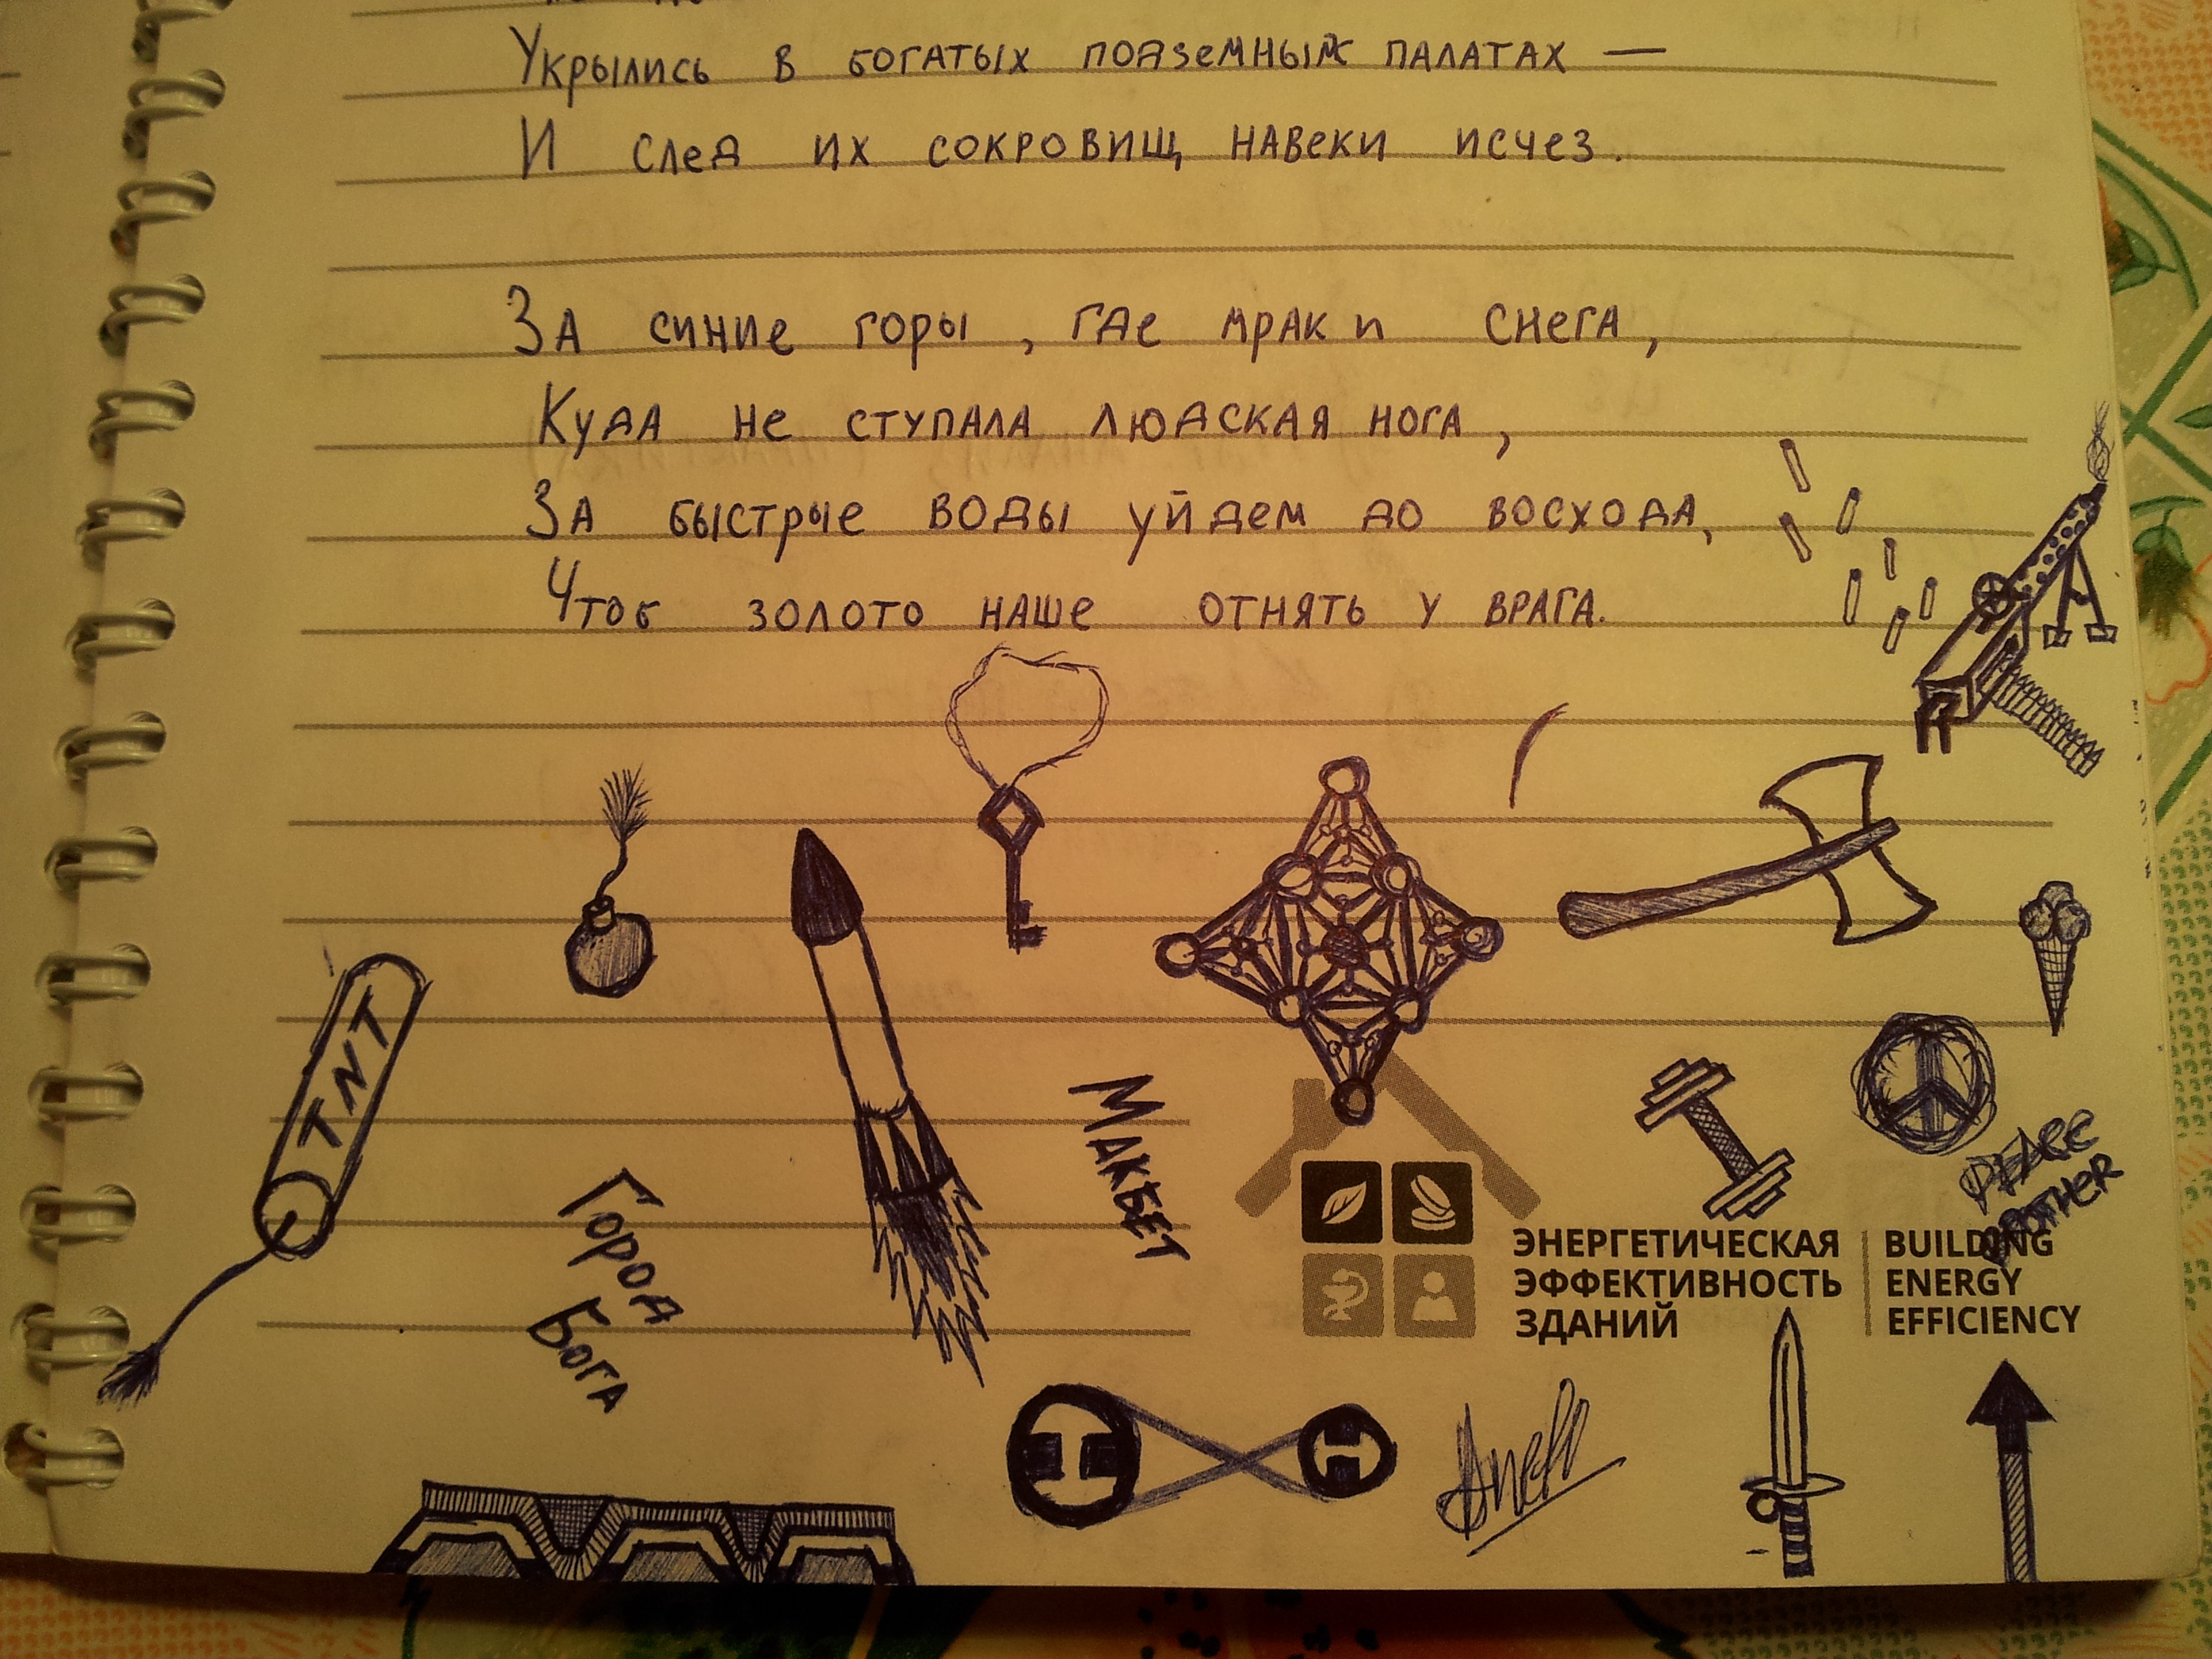 Укрылись в богатых подземных палатах —
И след их сокровищ навеки исчез.
За синие горы, где мрак и снега,
Куда не ступала людская нога,
За быстрые воды уйдем до восхода,
Чтоб золото наше отнять у врага.
TNT
Город
Бога
Макбет
PEACE
BROTHER
ЭНЕРГЕТИЧЕСКАЯ
ЭФФЕКТИВНОСТЬ
ЗДАНИЙ
BUILDING
ENERGY
EFFICIENCY